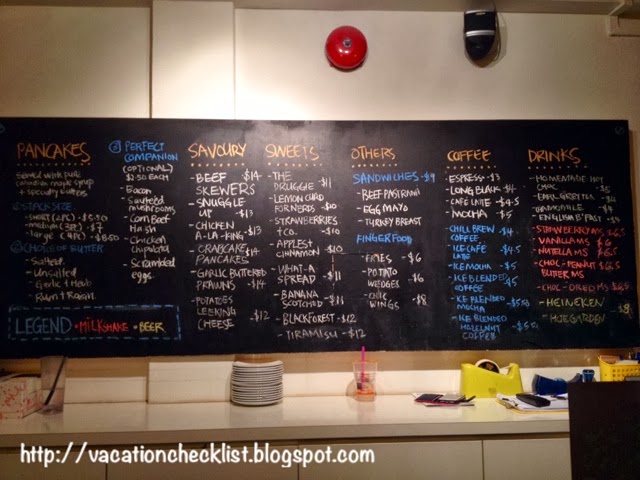 PANCAKES
Served with pure
canadian maple syrup
+ specialty butters
① STACK SIZE
- SHORT (2 PC) - $5.50
- medium (3PC) - $7
- large (4PC) - $8.50
② CHOICE OF BUTTER
- Salted
- Unsalted
- Garlic & Herb
- Rum & Raisin
③ PERFECT
COMPANION
(OPTIONAL)
$2.50 EACH
- Bacon
- Sauteed
mushrooms
- Corn Beef
Hash
- Chicken
- Scrambled
eggs
LEGEND • MILKSHAKE • BEER
SAVOURY
- BEEF -$14
SKEWERS
- SNUGGLE
UP -$11
- CHICKEN
A-LA-KING -$13
- CRABCAKE -$14
PANCAKES
- GARLIC BUTTERED
PRAWNS -$14
- POTATOES
LEEKING -$12
CHEESE
SWEETS
- THE
DRUGGIE -$11
- LEMON CURD
FOR NERDS -$10
- STRAWBERRIES
+ CO. -$10
- APPLES +
CINNAMON -$10
- WHAT-A-
SPREAD -$11
- BANANA
SCOTCH'D -$11
- BLACKFOREST -$12
- TIRAMISU -$12
OTHERS
SANDWICHES -$9
- BEEF PASTRAMI
- EGG MAYO
- TURKEY BREAST
FINGERFOOD
- FRIES -$6
- POTATO
WEDGES -$6
- CHIC
WINGS -$8
COFFEE
- ESPRESS -$3
- LONG BLACK -$4
- CAFE LATTE -$4.5
- MOCHA -$5
- CHILL BREW -$4
COFFEE
- ICE CAFE
LATE -$4.5
- ICE MOCHA -$5
- ICE BLENDED
COFFEE -$5
- ICE BLENDED -$5.50
MOCHA
- ICE BLENDED
HAZELNUT -$5.50
COFFEE
DRINKS
- HOMEMADE HOT
CHOC -$5
- EARL GREY TEA -$4
- CHAMOMILE -$4
- ENGLISH B'FAST -$4
- STRAWBERRY MS $6.5
- VANILLA MS $6
- NUTELLA MS $6.5
- CHOC-PEANUT $6.5
BUTTER MS
- CHOC-OREO MS $6.5
- HEINEKEN
- HOEGARDEN $9
http://vacationchecklist.blogspot.com